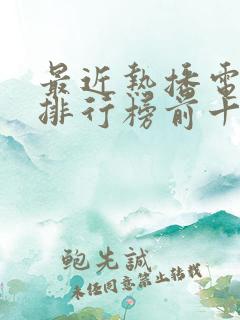 最近熱播電
排行榜前十
鮑先誠
未经同意禁止转载